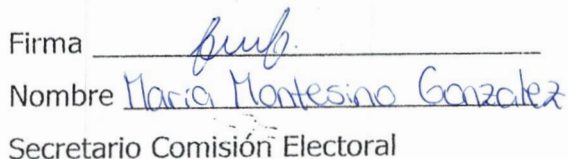 Firma
Nombre Maria Montesino Gonzalez
Secretario Comisión Electoral